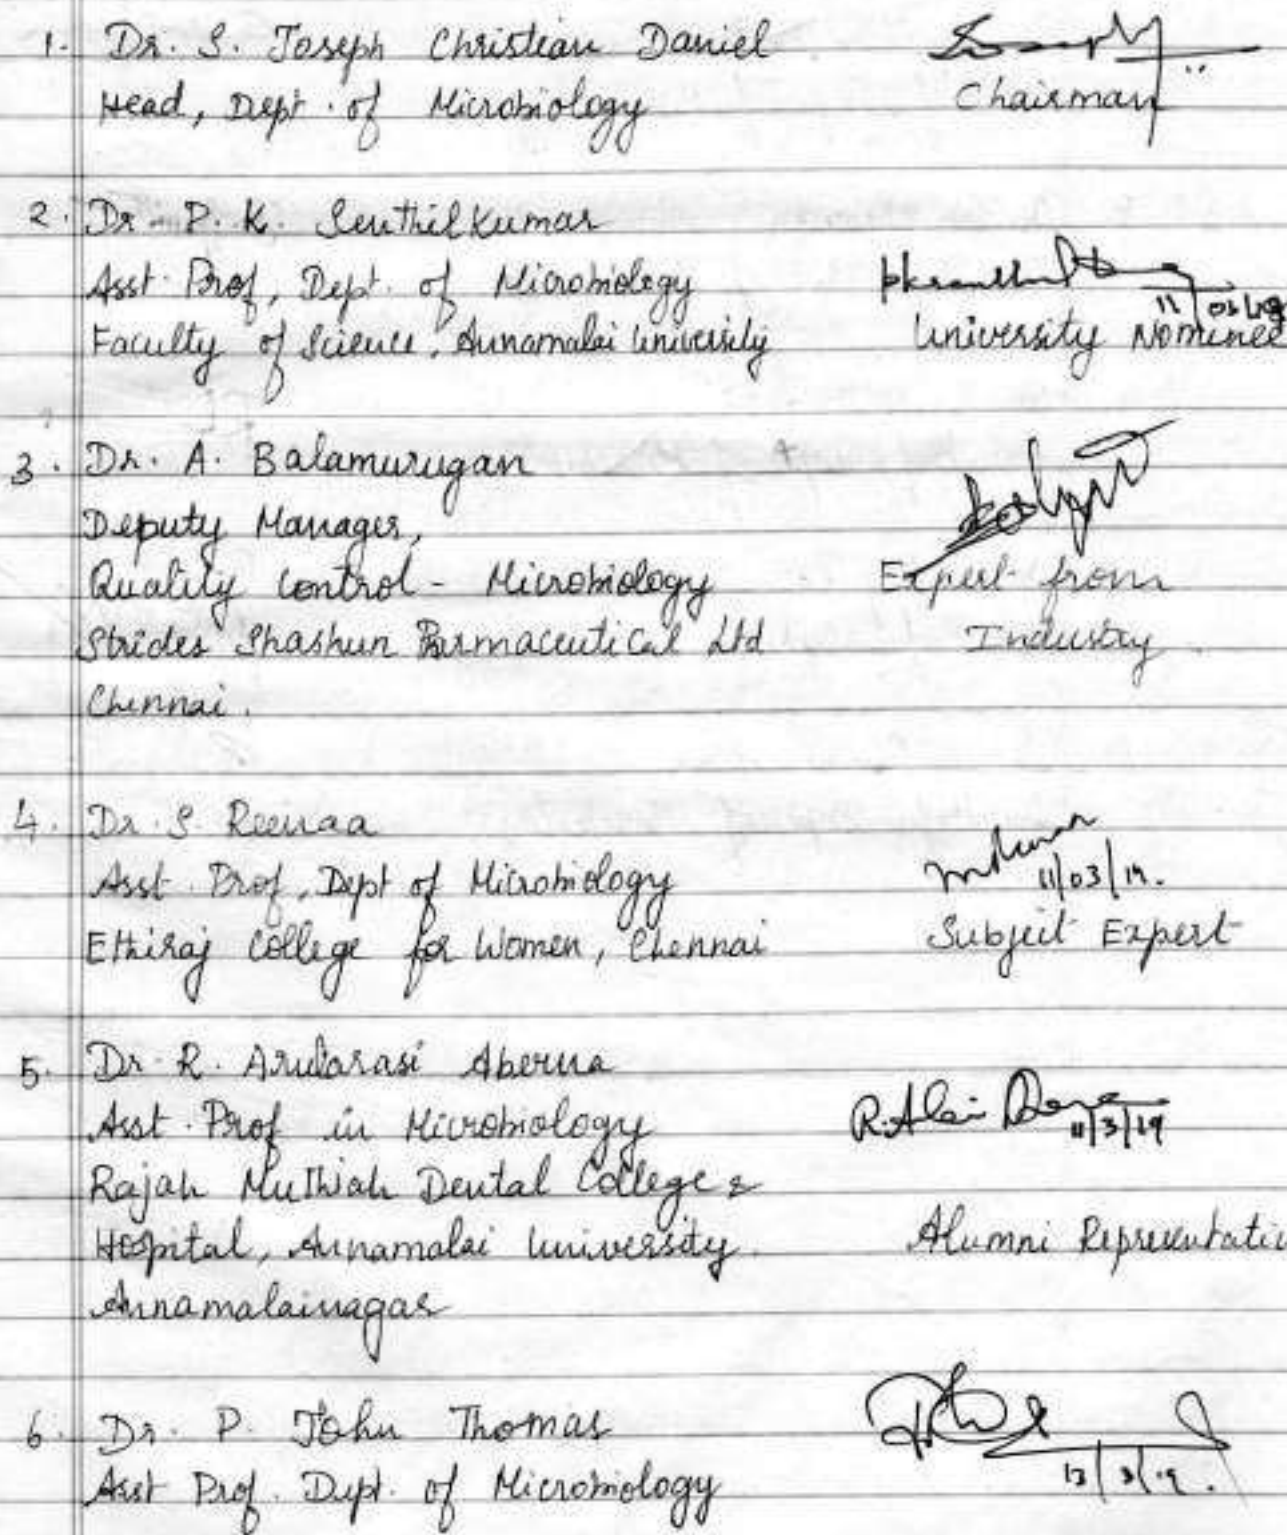 1. Dr. S. Joseph Christian Daniel
Head, Dept. of Microbiology
Chairman
2. Dr. P. K. Senthilkumar
Asst. Prof, Dept. of Microbiology
11/03/19
Faculty of Science, Annamalai University
University Nominee
3. Dr. A. Balamurugan
Deputy Manager,
Quality Control - Microbiology
Expert from
Strides Shashun Parmaceutical Ltd
Industry.
Chennai.
4. Dr. S. Reenaa
Asst. Prof, Dept of Microbiology
11/03/19.
Ethiraj College for Women, Chennai
Subject Expert
5. Dr. R. Arularasi Aberna
Asst. Prof in Microbiology
11/3/19
Rajah Muthiah Dental College &
Hospital, Annamalai University.
Alumni Representativ
Annamalainagar
6. Dr. P. John Thomas
Asst Prof. Dept. of Microbiology
13/3/19.